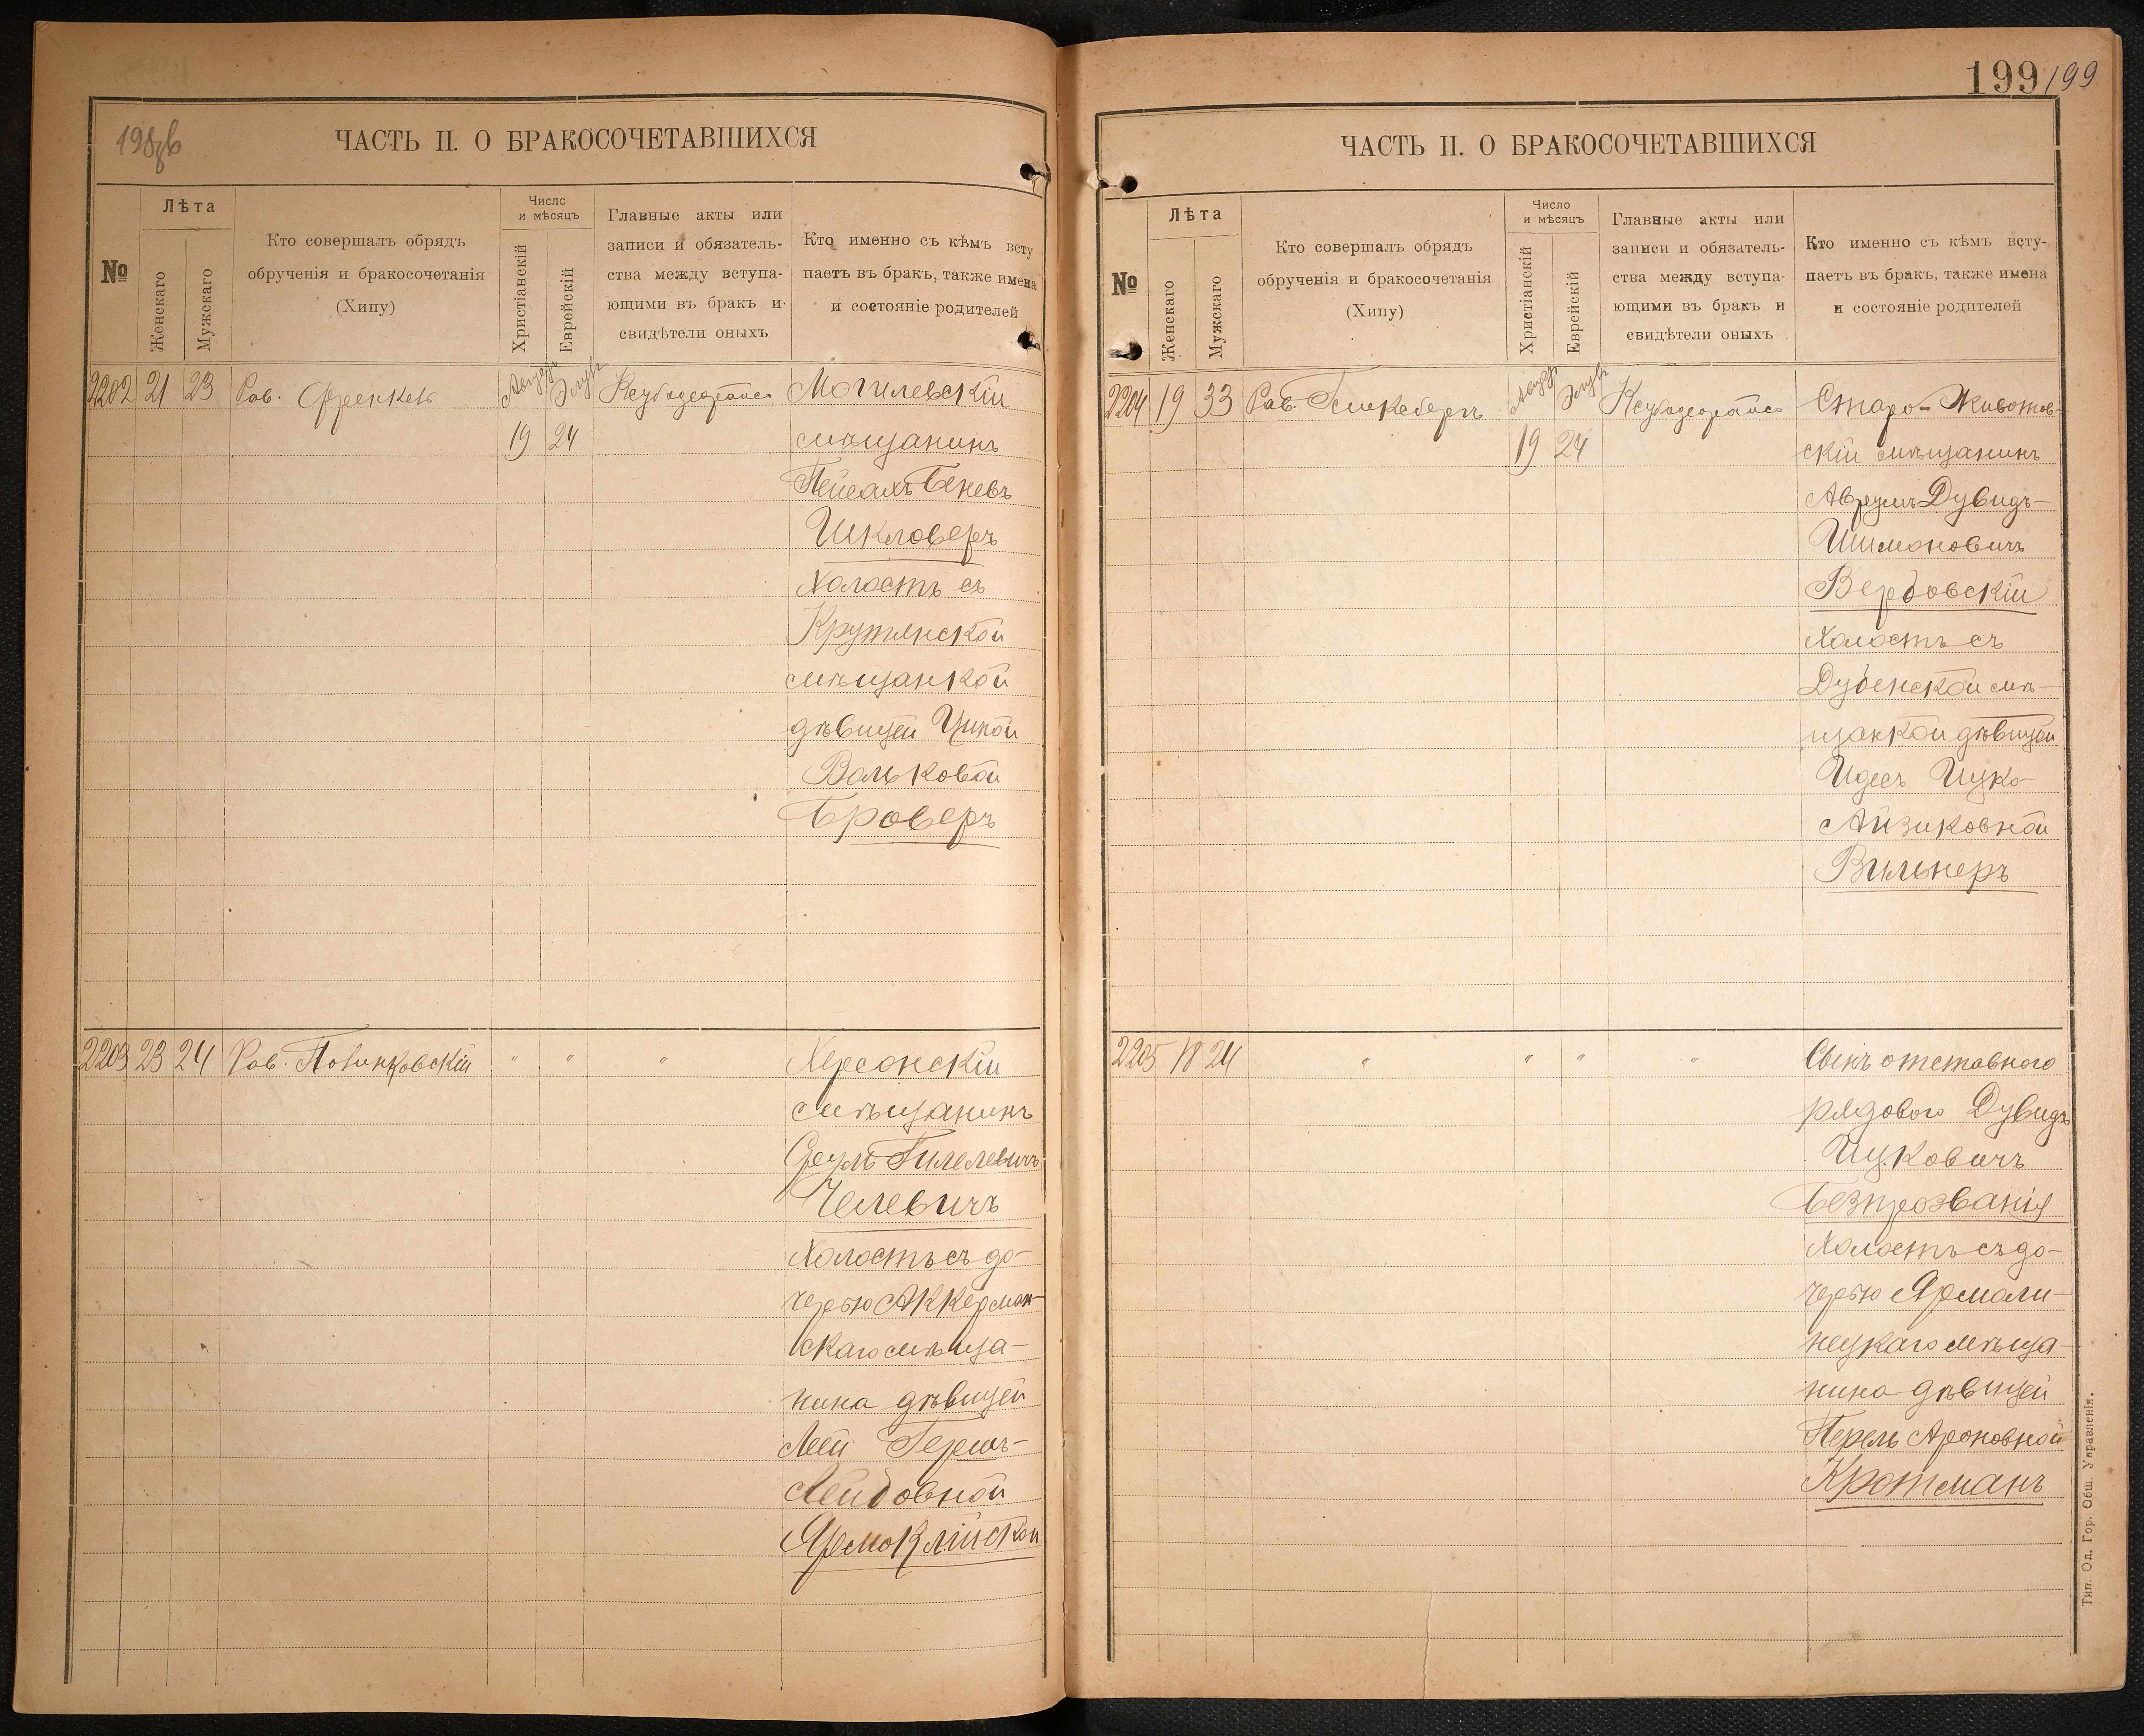 198 об
ЧАСТЬ II. О БРАКОСОЧЕТАВШИХСЯ
№
Лѣта
Женскаго
Мужскаго
Кто совершалъ обрядъ
обрученія и бракосочетанія
(Хипу)
Число
и мѣсяцъ
Христіанскій
Еврейскій
Главные акты или
записи и обязатель-
ства между вступа-
ющими въ бракъ и
свидѣтели оныхъ
Кто именно съ кѣмъ всту
паетъ въ бракъ, также имена
и состояніе родителей
2202 21 23 Рав. Френкель Август Элулъ Могилевскій
19 24 мѣщанинъ
Пейсахъ Беневъ
Шкловеръ
Холостъ съ
Крутянской
мѣщанкой
дѣвицей Ципой
Вольковой
Броверъ
2203 23 24 Рав. " " " Херсонскій
мѣщанинъ
Сруль Гилелевичъ
Челевичъ
Холостъ съ до-
черью Аккерман-
скаго мѣща-
нина дѣвицей
Леей Гершъ-
Лейбовной
199 199
ЧАСТЬ II. О БРАКОСОЧЕТАВШИХСЯ
№
Лѣта
Женскаго
Мужскаго
Кто совершалъ обрядъ
обрученія и бракосочетанія
(Хипу)
Число
и мѣсяцъ
Христіанскій
Еврейскій
Главные акты или
записи и обязатель-
ства между вступа-
ющими въ бракъ и
свидѣтели оныхъ
Кто именно съ кѣмъ всту-
паетъ въ бракъ, также имена
и состояніе родителей
2204 19 33 Рав. Август Элулъ Старо-Животов-
19 24 скій мѣщанинъ
Аврумъ Дувидъ-
Шимоновичъ
Вербовскій
Холостъ съ
Дубенской мѣ-
щанкой дѣвицей
Идесъ Ицко-
Айзиковной
Вильнеръ
2205 18 24 " " " " Сынъ отставного
рядового Дувидъ
Ицковичъ
Безпрозванія
Холостъ съ до-
черью Ярмоли-
нецкаго мѣща-
нина дѣвицей
Перель Ароновной
Кротманъ
Тип. Од. Гор. Общ. Управленія.